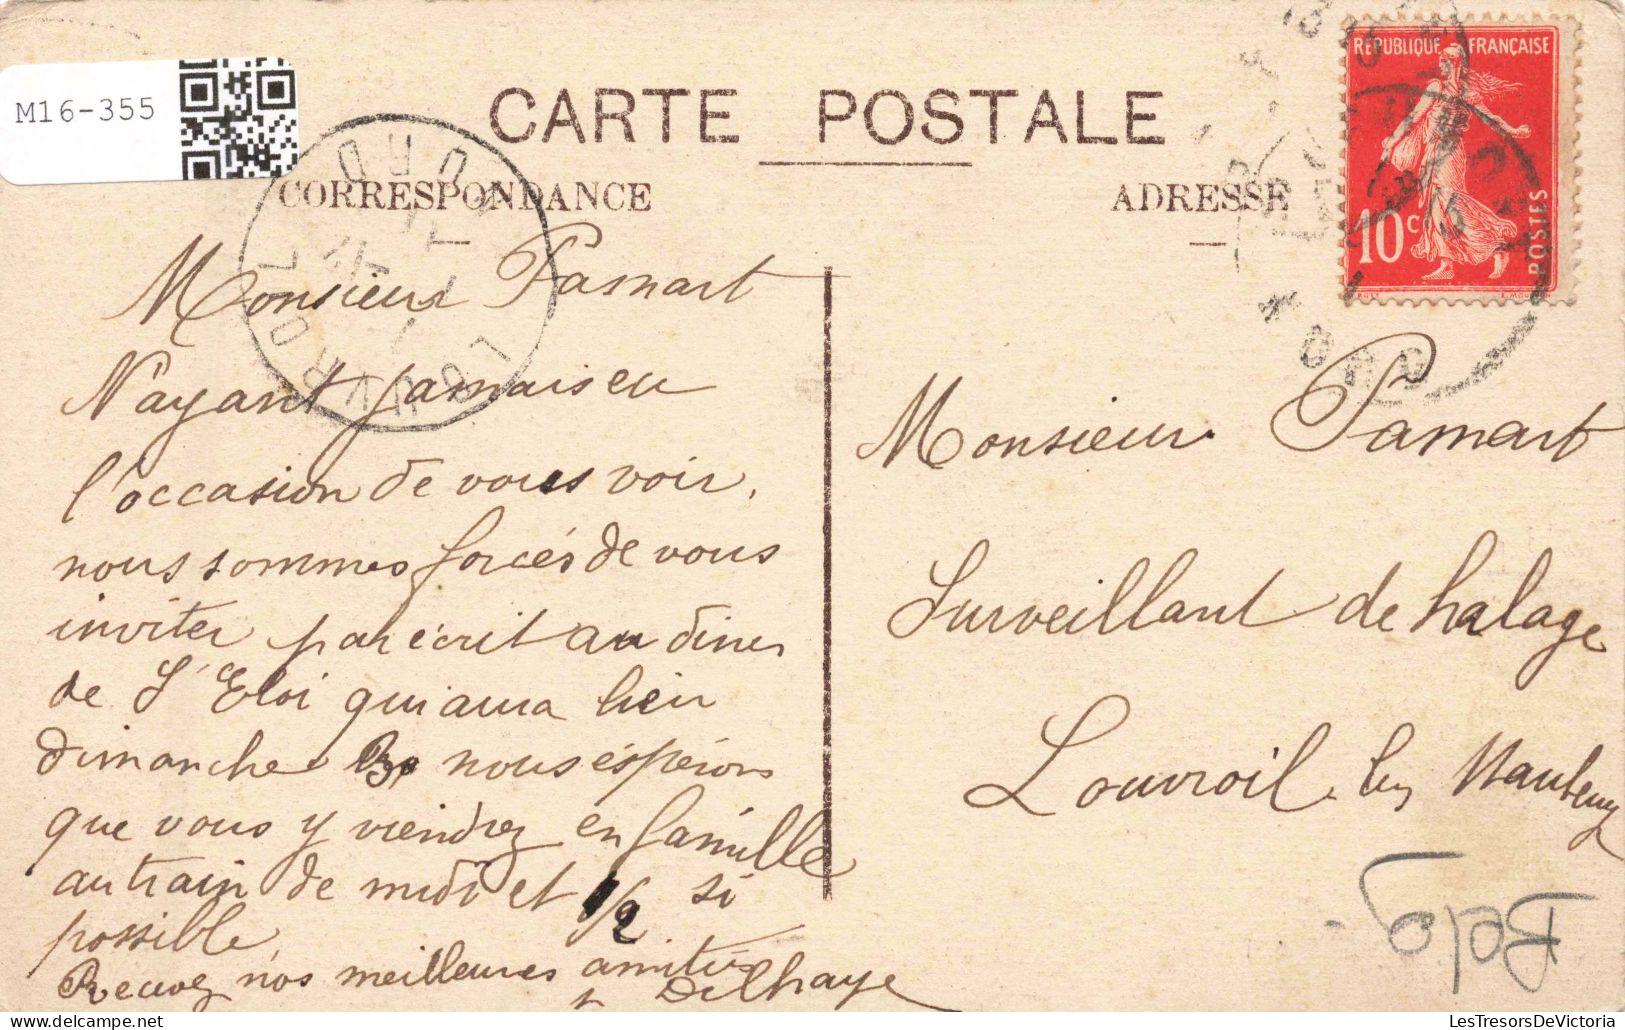 M16-355
CARTE POSTALE
CORRESPONDANCE
Monsieur Pamart
N'ayant jamais eu
l'occasion de vous voir,
nous sommes forcés de vous
inviter par écrit au diner
de St Eloi qui aura lieu
dimanche nous éspérons
que vous y viendrez en famille
au train de midi et 1/2 si
possible
Recevez nos meilleures amitiés
Delhaye
ADRESSE
REPUBLIQUE FRANÇAISE
10c
POSTES
Monsieur Pamart
Surveillant de halage
Louvroil les Maubeuge
LOUVROIL
NORD
LesTresorsDeVictoria
www.delcampe.net